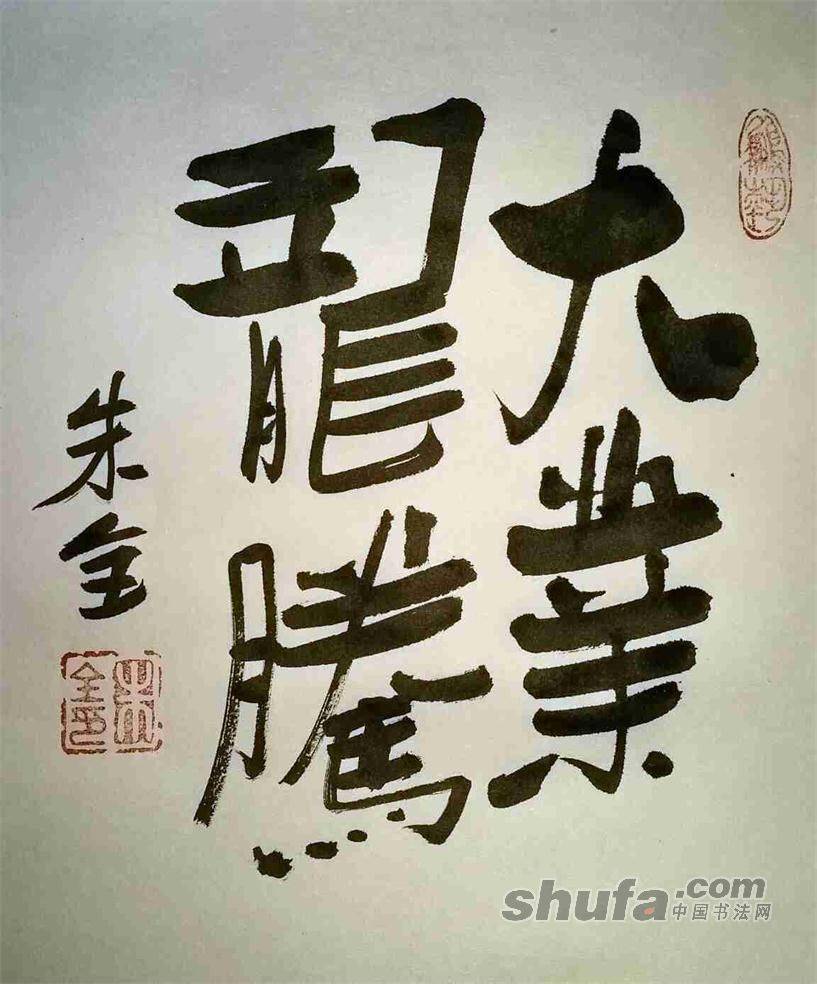 大業
龍騰
朱全
朱全印
shufa.com
中国书法网